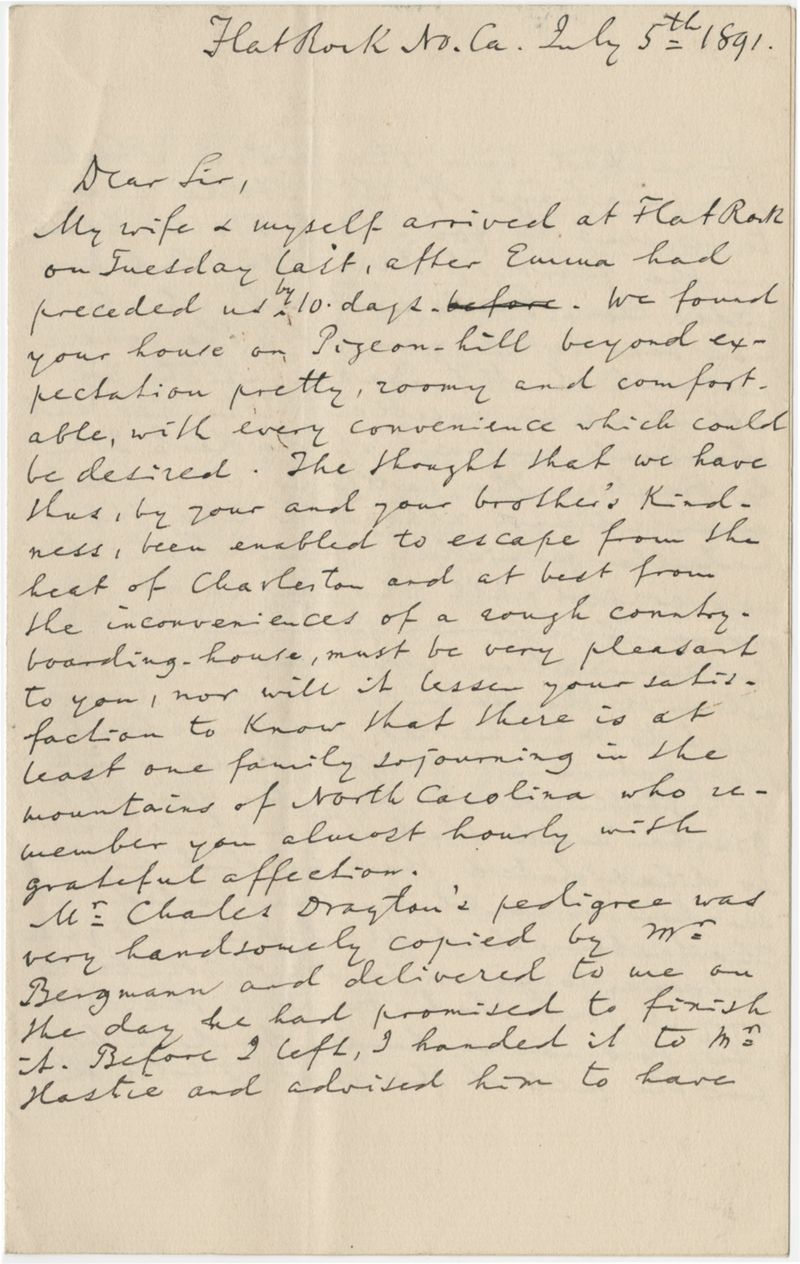 Flat Rock No. Ca. July 5th 1891.
Dear Sir,
My wife & myself arrived at Flat Rock
on Tuesday last, after Emma had
preceded us by 10 days before. We found
your house on Pigeon-hill beyond ex-
pectation pretty, roomy and comfort-
able, with every convenience which could
be desired. The thought that we have
thus, by your and your brother's Kind-
ness, been enabled to escape from the
heat of Charleston and at best from
the inconveniences of a rough country-
boarding-house, must be very pleasant
to you, nor will it lessen your satis-
faction to Know that there is at
least one family sojourning in the
mountains of North Carolina who re-
member you almost hourly with
grateful affection.
Mr Charles Drayton's pedigree was
very handsomely copied by Mr
Bergmann and delivered to me on
the day he had promised to finish
it. Before I left, I handed it to Mr
Hastie and advised him to have